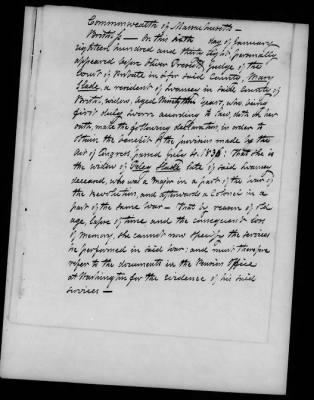 Commonwealth of Massachusetts —
Bristol ss — On this sixth day of January
eighteen hundred and thirty eight personally
appeared before Oliver Prescott Judge of the
Court of Probate in & for said County, Mary
Slade, a resident of Swansey in said County of
Bristol, widow, aged Ninety three years, who, being
first duly sworn according to law, doth, on her
oath, make the following declaration, in order to
obtain the benefit of the provision made by the
Act of Congress passed July 4. 1836: That she is
the widow of Peleg Slade late of said Swansey
deceased, who was a Major in a part of the War of
the revolution, and afterwards a Colonel in a
part of the same War — That by reason of old
age, lapse of time and the consequent loss
of memory, she cannot now specify the services
he performed in said War; and must therefore
refer to the documents in the Pension Office
at Washington for the evidence of his said
services —